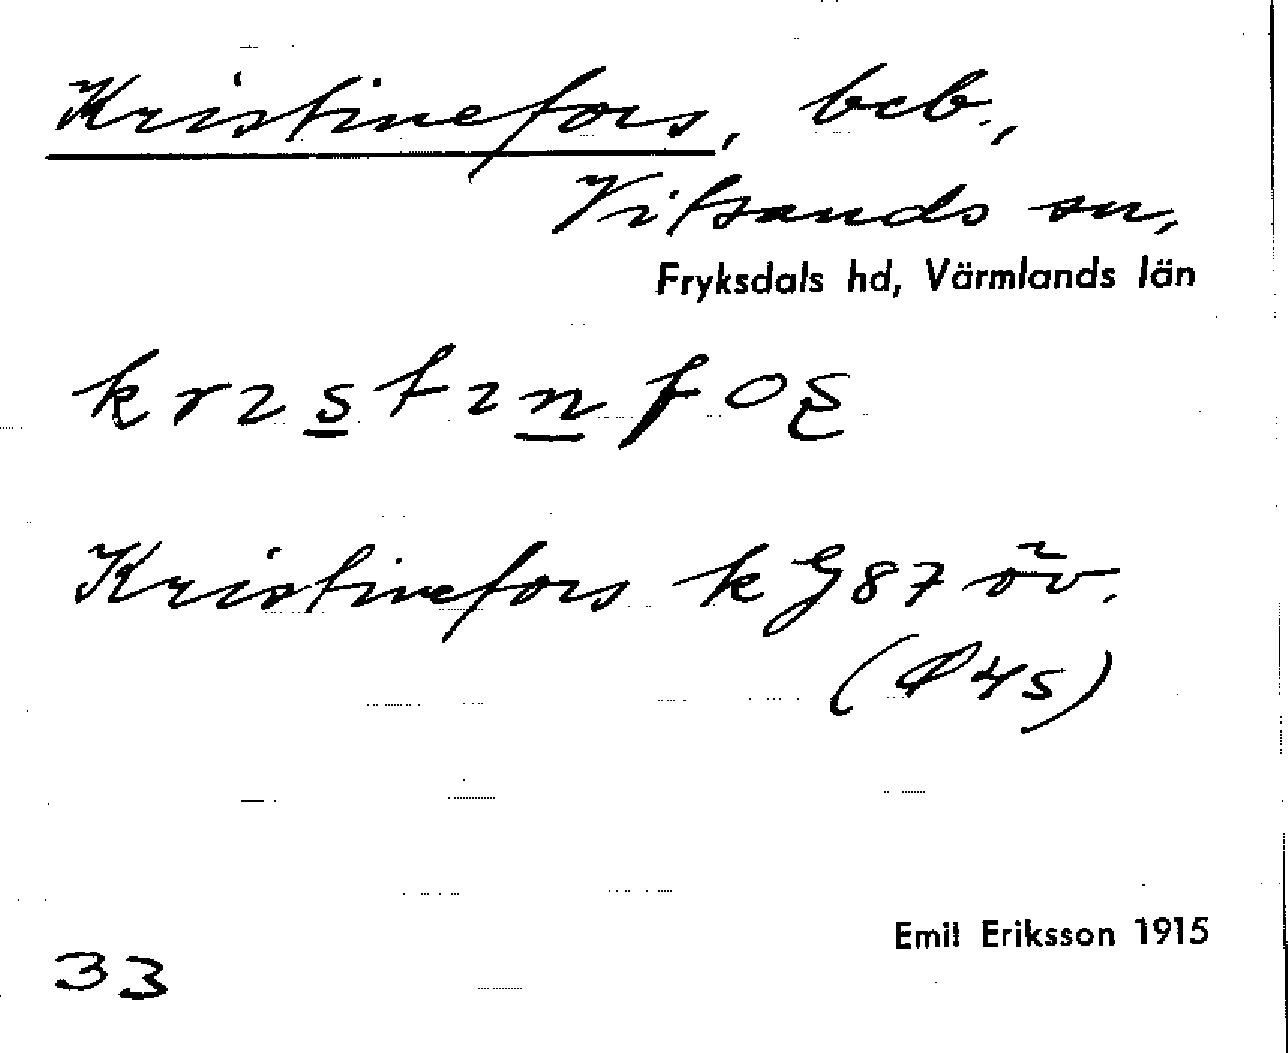 Kristinefors, beb.,
Vitsands sn,
Fryksdals hd, Värmlands län
krıs̲tın̲foʂ
Kristinefors k G87 öv.
(Ö4s)
Emil Eriksson 1915
33